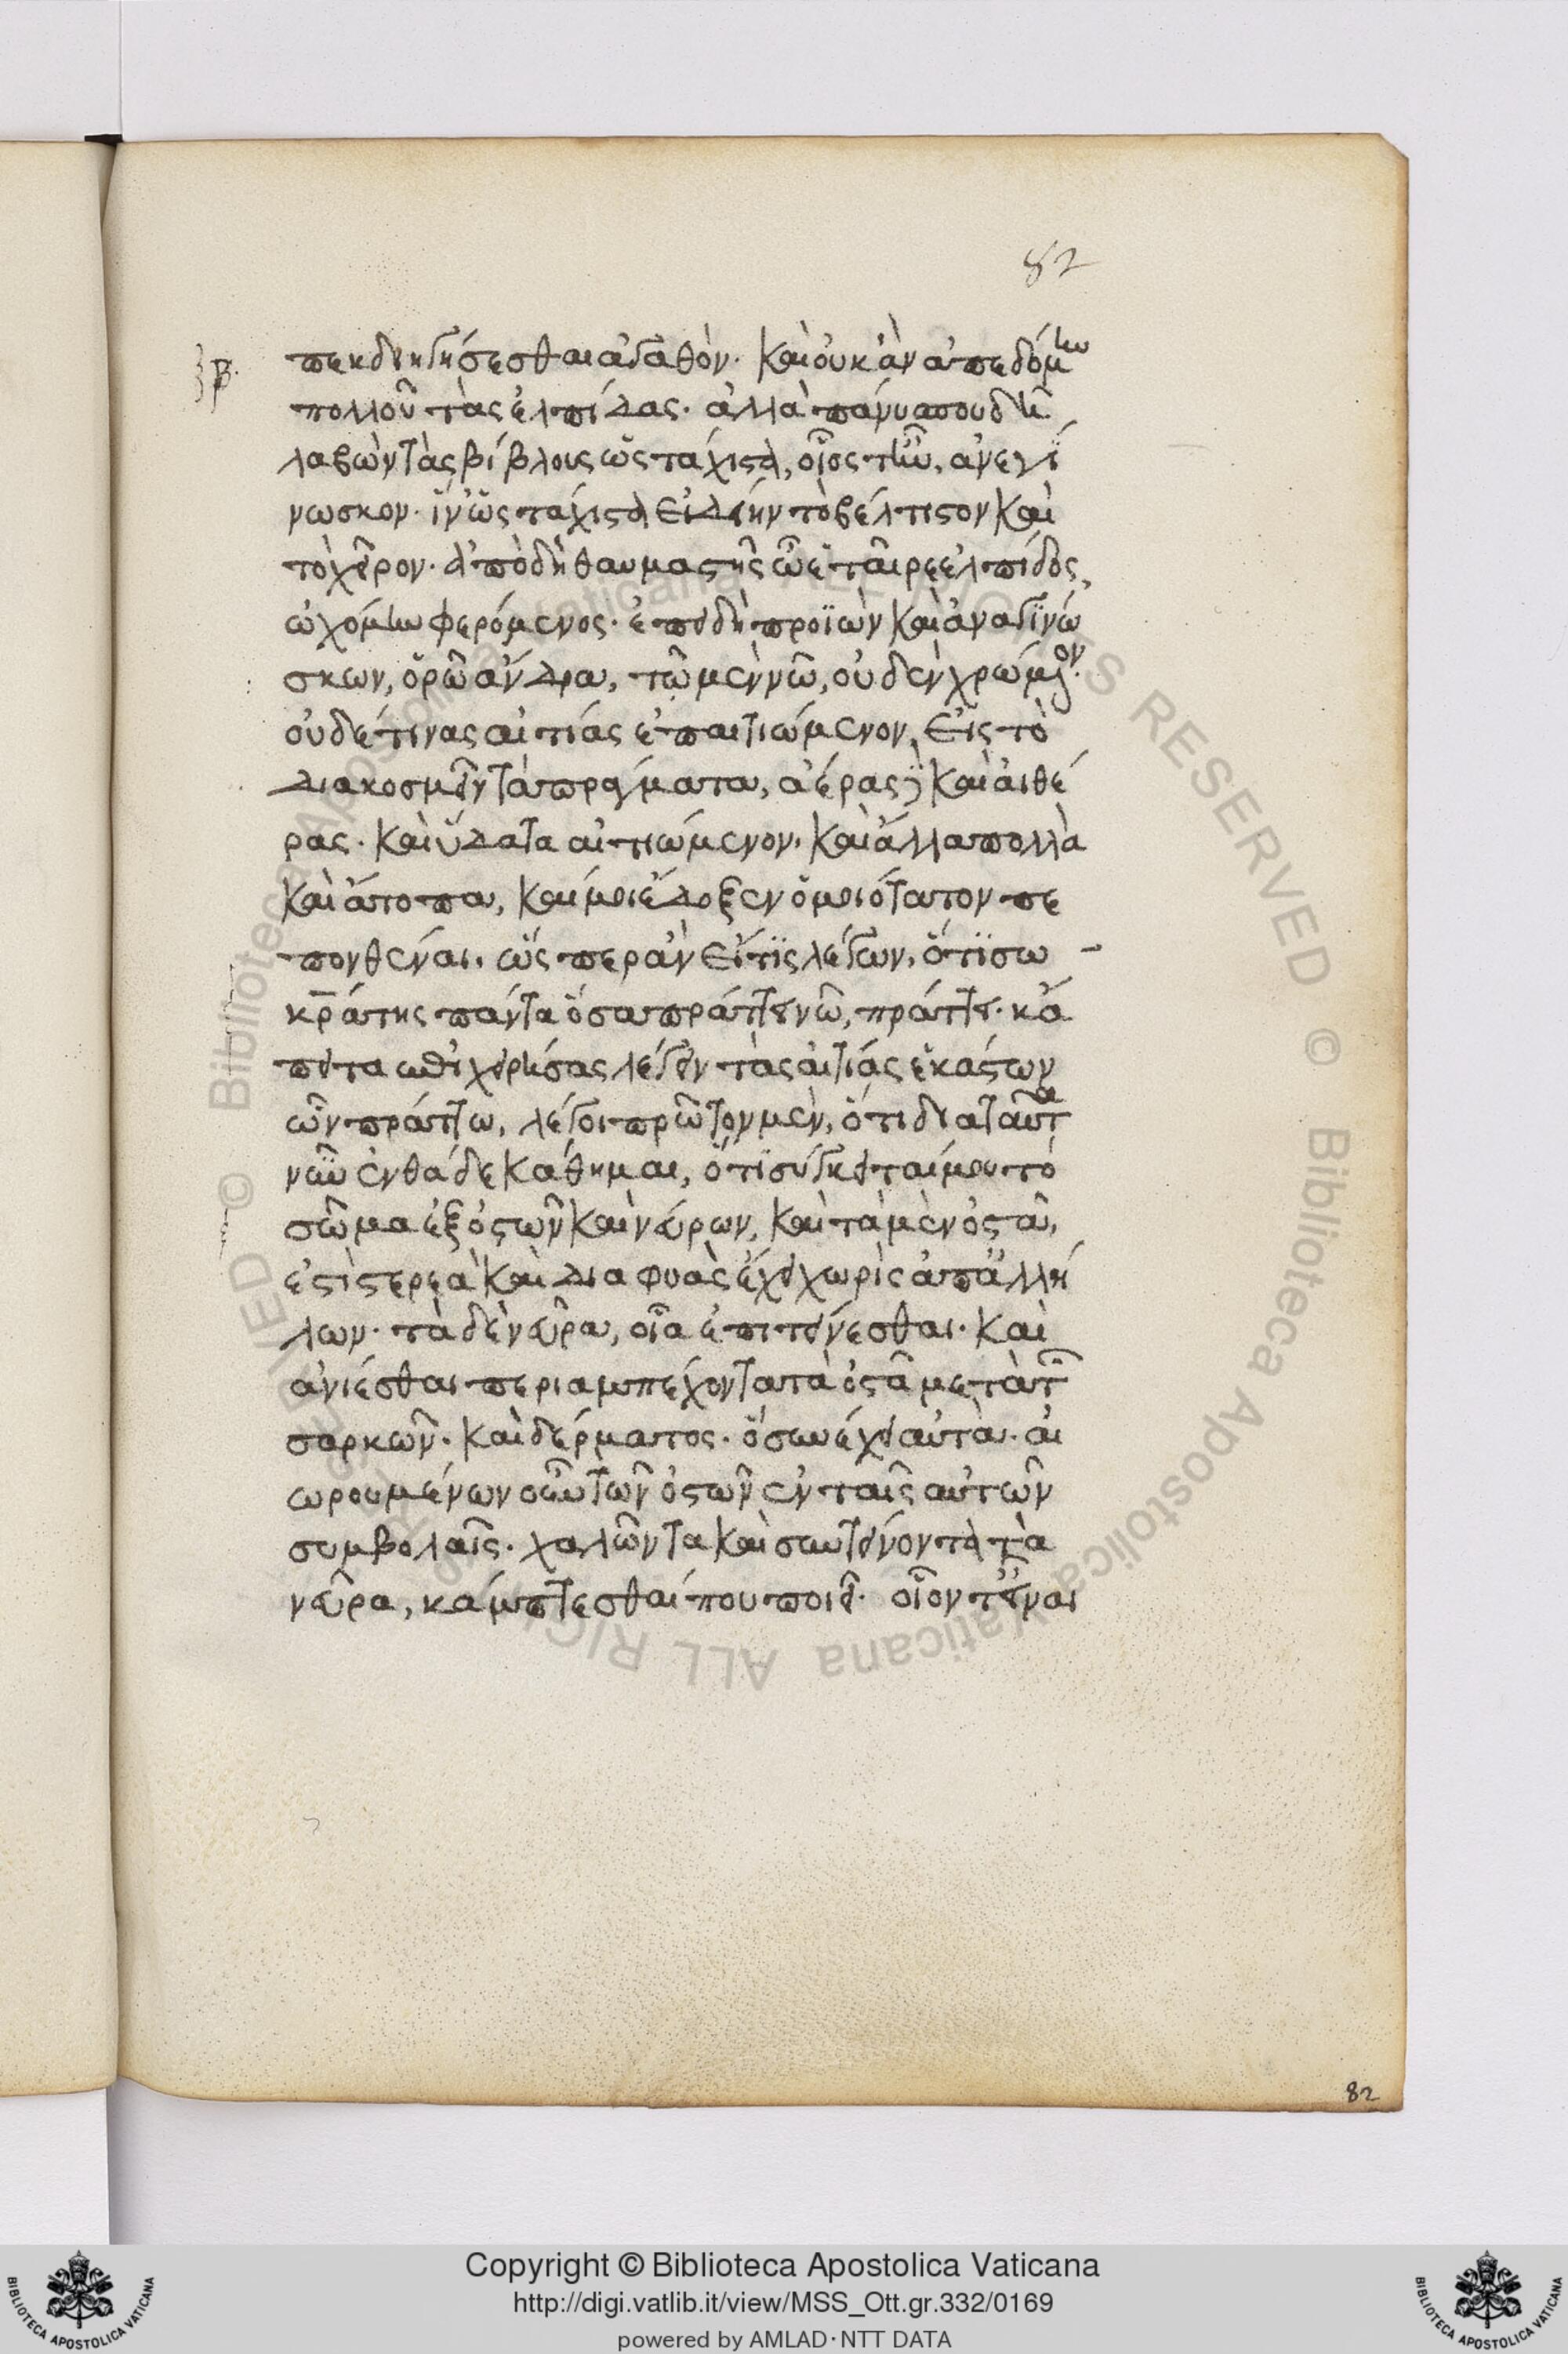 82
β. πεκδιηγήσεσθαι ἀγαθὸν· καὶ οὐκ ἂν ἀπεδόμην
πολλοῦ τὰς ἐλπίδας· ἀλλὰ πάνυ σπουδῆ
λαβὼν τὰς βίβλους ὡς τάχιστα, οἷός τ' ἦν, ἀνεγί
νωσκον· ἵν' ὡς τάχιστα εἰδείην τὸ βέλτιστον καὶ
τὸ χεῖρον· ἀπὸ δὴ θαυμαστῆς ὦ ἑταῖρε ἐλπίδος,
ὠχόμην φερόμενος· ἐπειδὴ προϊὼν καὶ ἀναγϊνώ
σκων, ὁρῶ ἄνδρα, τῶ μὲν νῶ, οὐδὲν χρώμενον·
οὐδέ τινας αἰτίας ἐπαιτιώμενον, εἰς τὸ
διακοσμεῖν τὰ πράγματα, ἀέρας δὲ καὶ αἰθέ
ρας· καὶ ὕδατα αἰτιώμενον, καὶ ἄλλα πολλὰ
καὶ ἄτοπα, καί μοι ἔδοξεν ὁμοιότατον πε
πονθέναι, ὥς περ ἂν εἴ τϊς λέγων, ὅτϊ σω
κράτης πάντα ὅσα πράττει νῶ, πράττει· κἄ
πειτα ἐπιχειρήσας λέγειν τὰς αἰτίας ἑκάστων
ὧν πράττω, λέγοι πρῶτον μὲν, ὅτι διὰ ταῦτα
νῦν ἐνθάδε κάθημαι, ὅτϊ σύγκειταί μου τὸ
σῶμα ἐξ ὀστῶν καὶ νεύρων, καὶ τὰ μὲν ὀστᾶ,
ἐστὶ στερεὰ καὶ διαφυὰς ἔχει χωρὶς ἀπ' ἀλλή
λων· τὰ δὲ νεῦρα, οἷα ἐπιτείνεσθαι· καὶ
ἀνιέσθαι περιαμπέχοντα τὰ ὀστᾶ μετὰ τῶν
σαρκῶν· καὶ δέρματος· ὃ συνέχει αὐτὰ· αἰ
ωρουμένων οὖν τῶν ὀστῶν ἐν ταῖς αὐτῶν
συμβολαῖς· χαλῶντα καὶ συντείνοντα τὰ
νεῦρα, κάμπτεσθαί που ποιεῖ· οἷόν τ' εἶναι
82
Copyright © Biblioteca Apostolica Vaticana
http://digi.vatlib.it/view/MSS_Ott.gr.332/0169
powered by AMLAD·NTT DATA
BIBLIOTECA APOSTOLICA VATICANA
BIBLIOTECA APOSTOLICA VATICANA